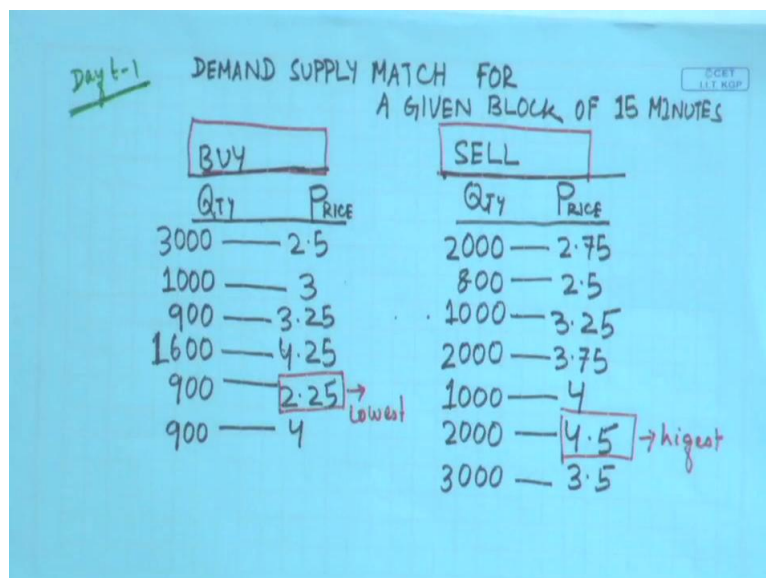 Day t-1
DEMAND SUPPLY MATCH FOR
A GIVEN BLOCK OF 15 MINUTES
©CET
I.I.T. KGP
BUY
QTY PRICE
3000 — 2.5
1000 — 3
900 — 3.25
1600 — 4.25
900 — 2.25 → Lowest
900 — 4
SELL
QTY PRICE
2000 — 2.75
800 — 2.5
1000 — 3.25
2000 — 3.75
1000 — 4
2000 — 4.5 → higest
3000 — 3.5